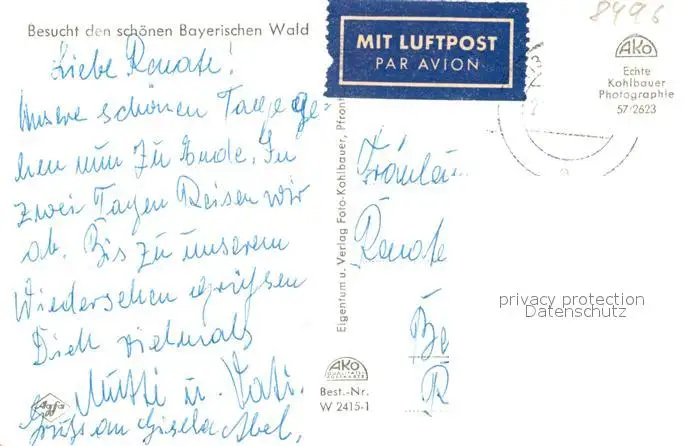 Besucht den schönen Bayerischen Wald
Liebe Renate!
Unsere schönen Tage ge-
hen nun zu Ende. In
zwei Tagen Reisen wir
ab. Bis zu unserem
Wiedersehen grüßen
Dich vielmals
Mutti u. Vati.
Gruß an Gisela Abel,
Agfa
MIT LUFTPOST
PAR AVION
8496
AKO
Echte
Kohlbauer
Photographie
57/2623
Eigentum u. Verlag Foto-Kohlbauer, Pfront
Fräulein
Renate
Be
R
privacy protection
Datenschutz
AKO
Best.-Nr.
W 2415-1